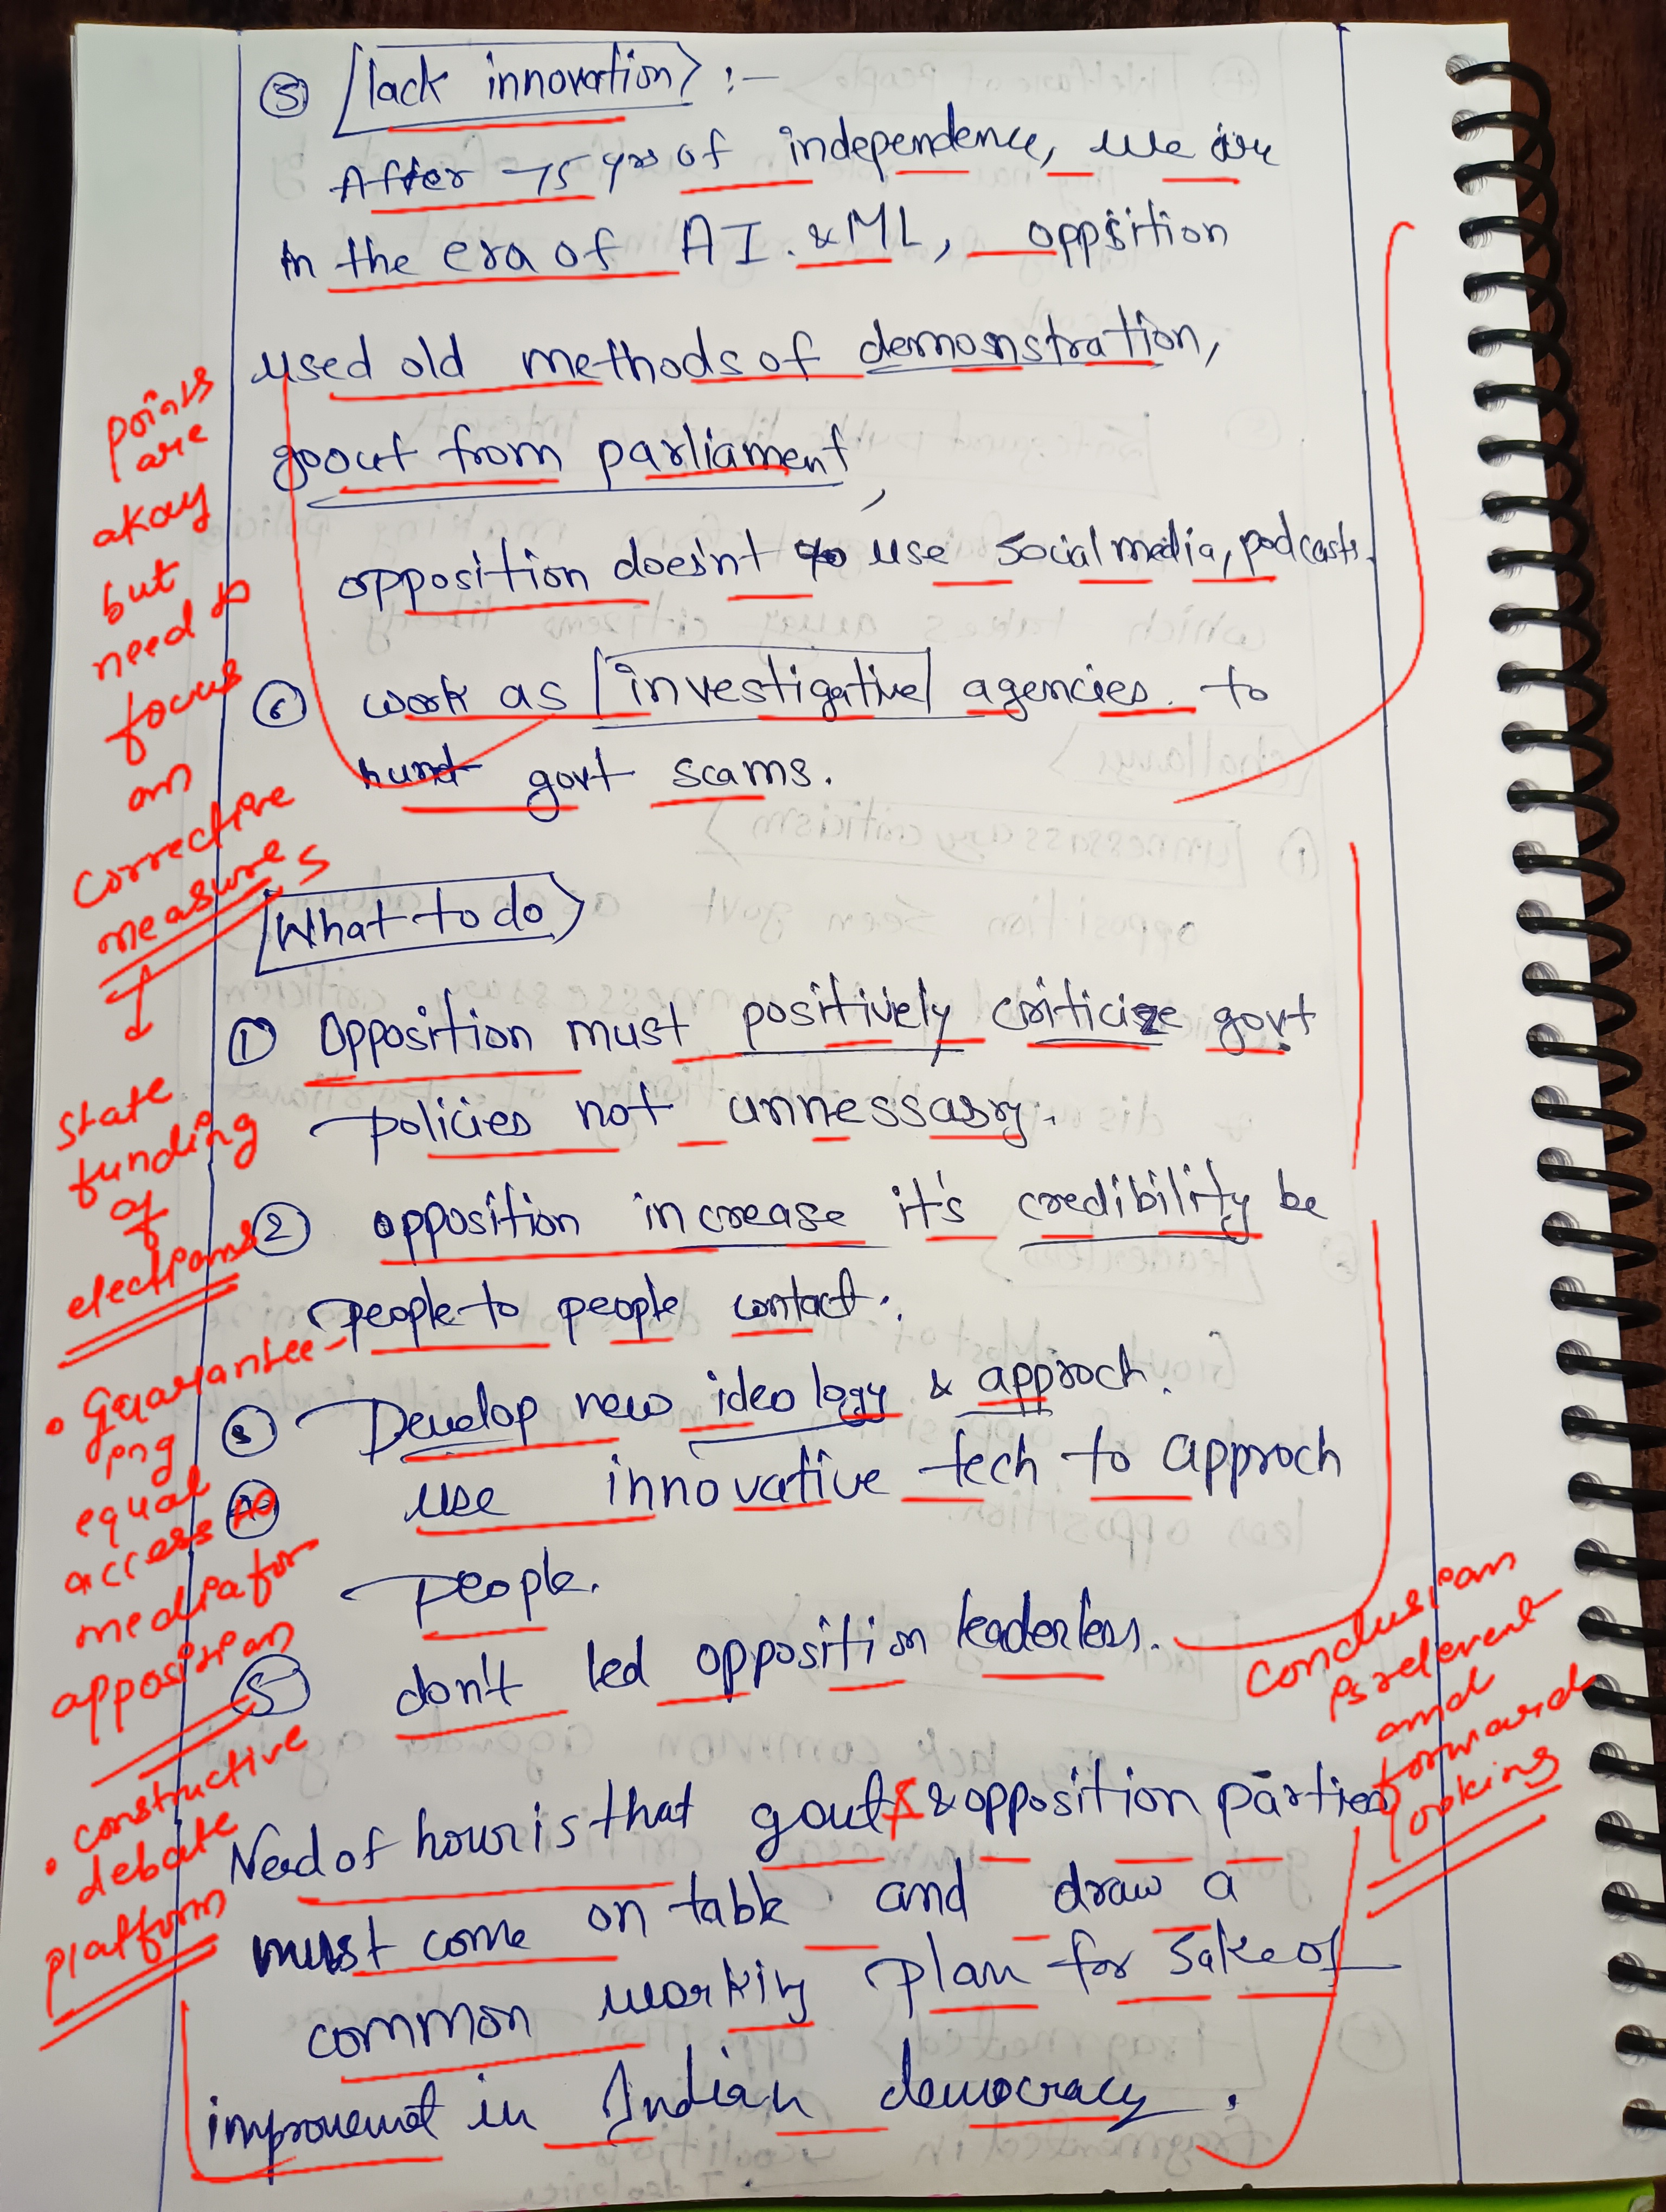 ⑤ lack innovation :-
After 75 yrs of independence, we are
in the era of AI. & ML, oppsition
used old methods of demonstration,
goout from parliament,
opposition doesn't use social media, podcasts.
⑥ work as investigative agencies. to
hund govt scams.
What to do
① Opposition must positively criticize govt
policies not unnessasry.
② opposition increase it's credibility be
people to people contact.
③ Develop new ideology & approch.
④ use innovative tech to approch
people.
⑤ don't led opposition leaderless.
Need of hour is that gout & opposition parties
must come on table and draw a
common working plan for sake of
improvemet in Indian democracy.
points
are
okay
but
need to
focus
on
corrective
measures
state
funding
of
elections
• Guarantee-
ing
equal
access to
media for
opposition
• constructive
debate
platform
Conclusion
is relevent
and
forward
looking